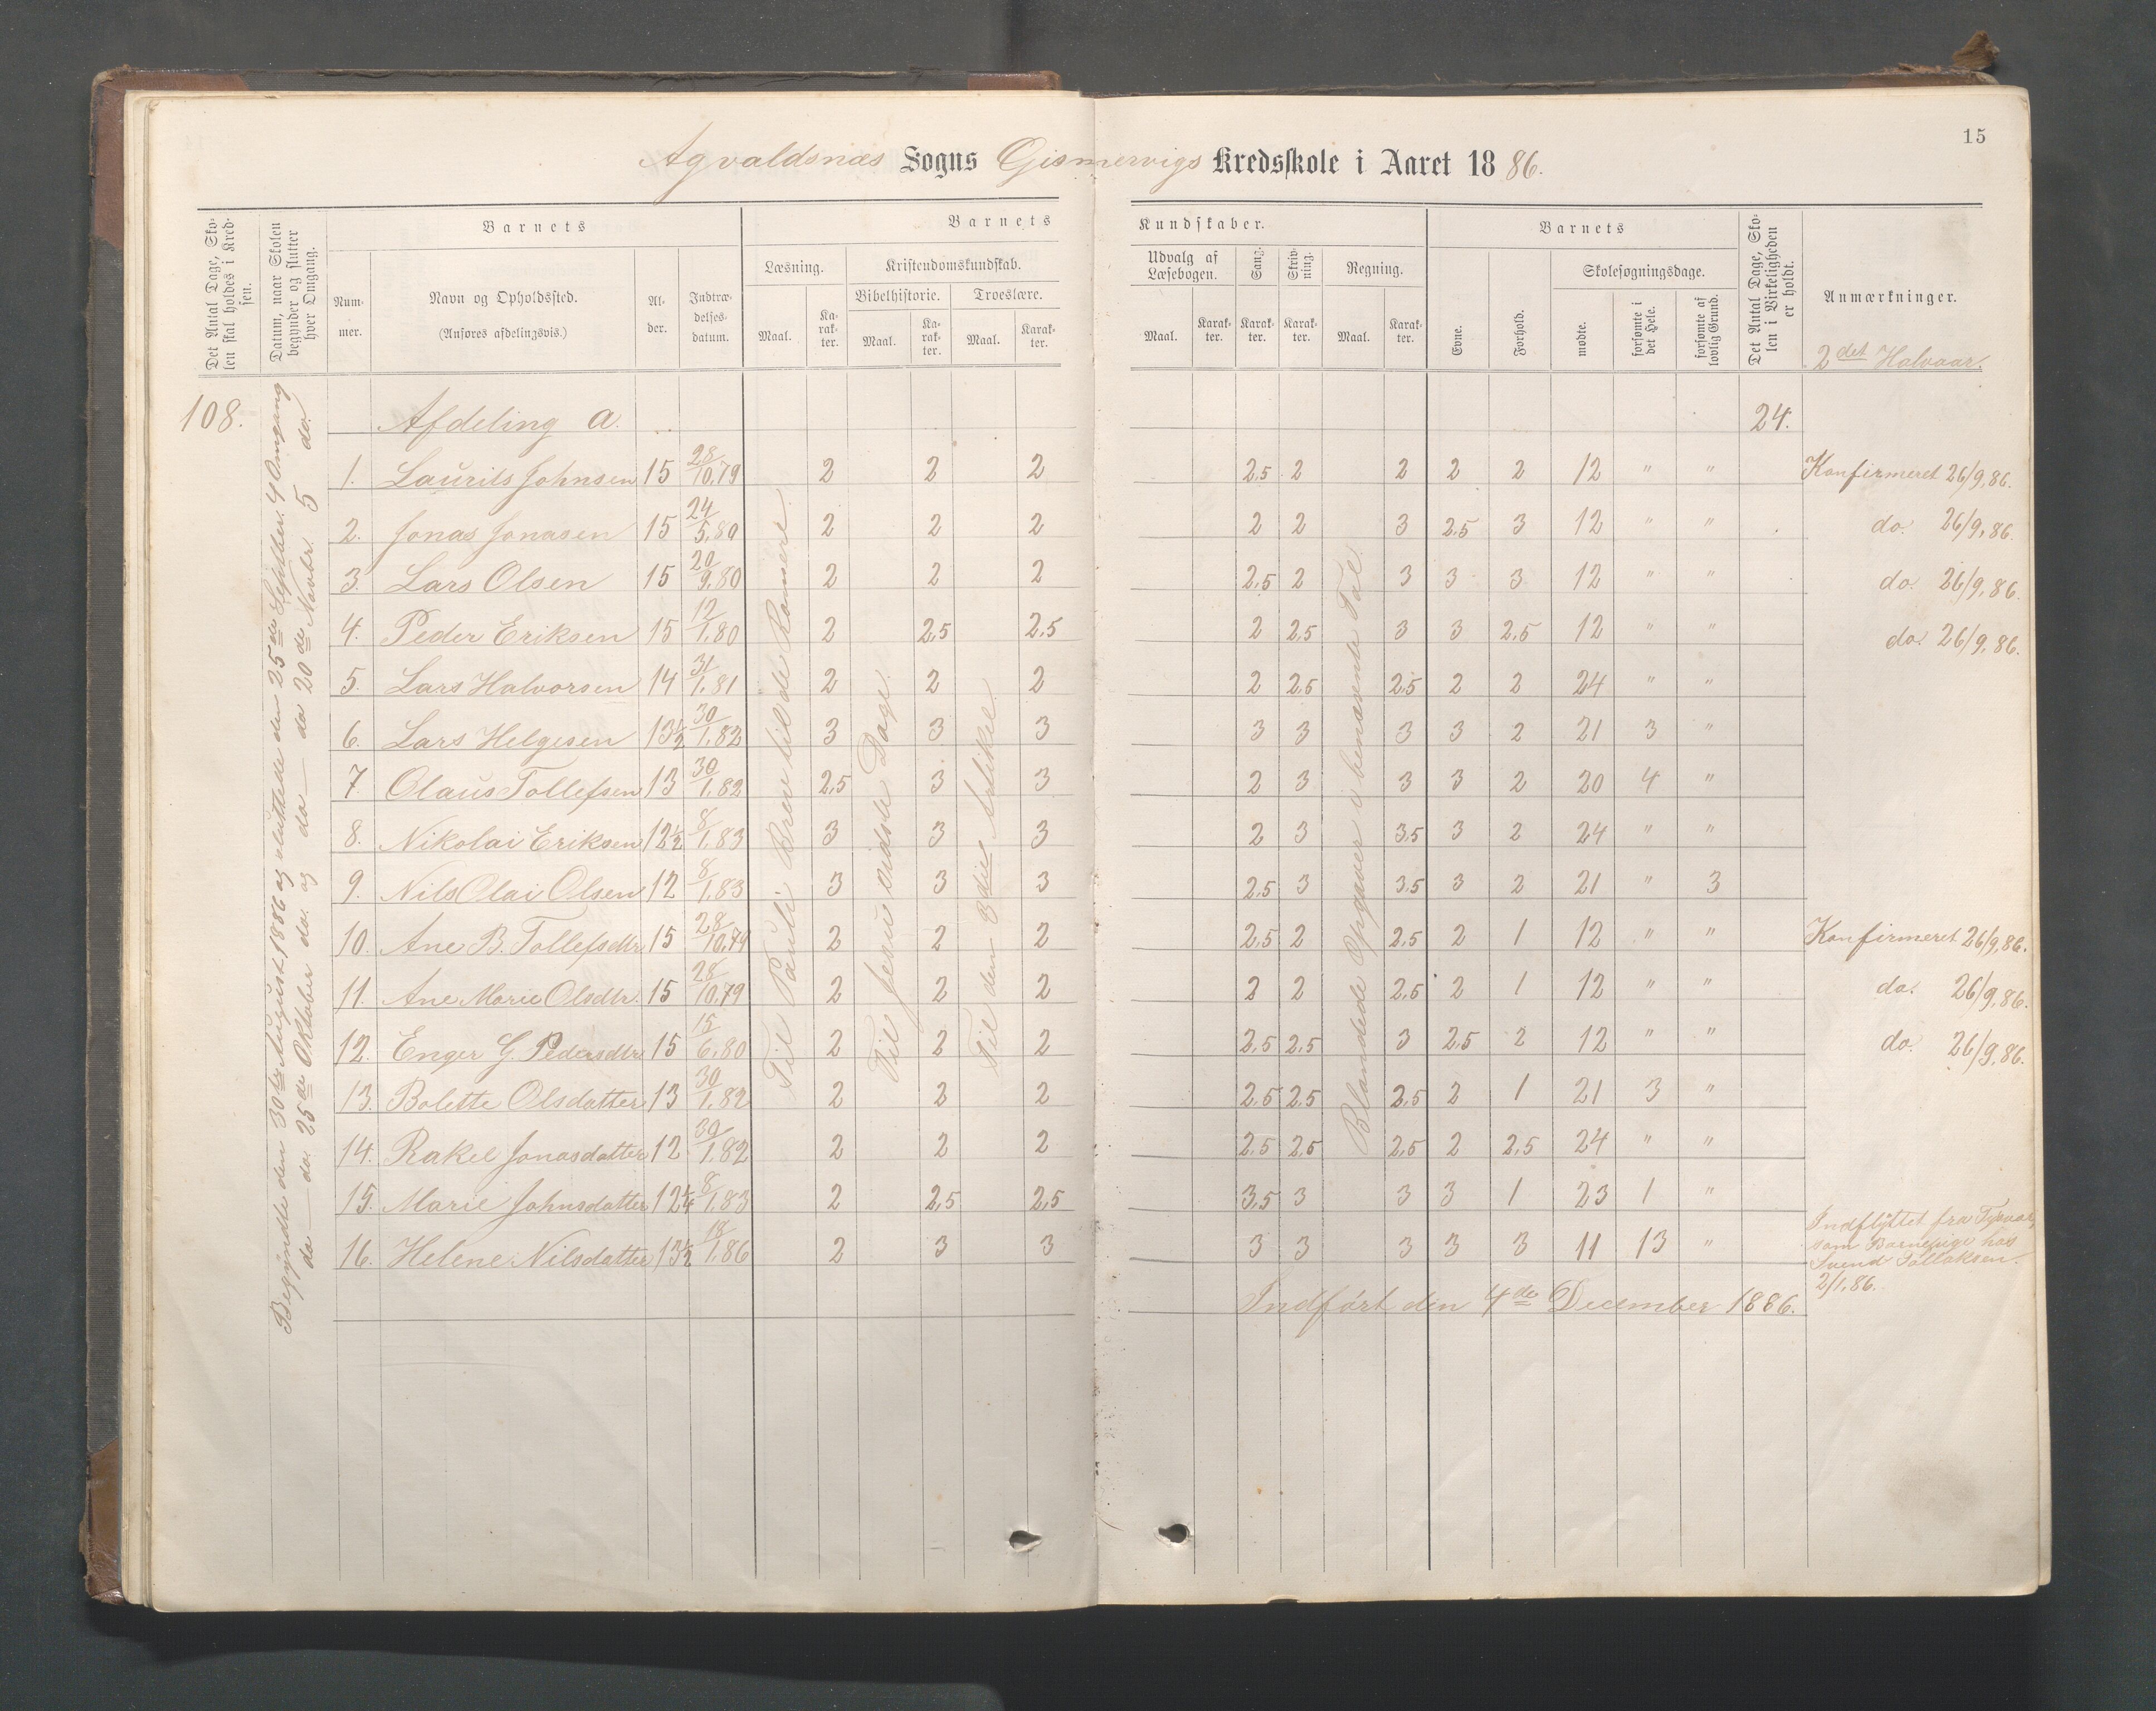 15
Agvaldsnæs Sogns Gismervigs Kredsskole i Aaret 1886.
Det Antal Dage, Skolen skal holdes i Kredsen.
Datum, naar Skolen begynder og slutter hver Omgang.
Barnets
Nummer.
Navn og Opholdssted.
(Anføres afdelingsvis.)
Alder.
Indtrædelsesdatum.
Barnets Kundskaber.
Læsning.
Maal.
Karakter.
Kristendomskundskab.
Bibelhistorie.
Maal.
Karakter.
Troeslære.
Maal.
Karakter.
Udvalg af Læsebogen.
Maal.
Karakter.
Sang.
Karakter.
Skrivning.
Karakter.
Regning.
Maal.
Karakter.
Barnets
Evne.
Forhold.
Skolesøgningsdage.
mødte.
forsømte i det Hele.
forsømte af lovlig Grund.
Det Antal Dage, Skolen i Virkeligheden er holdt.
Anmærkninger.
2det Halvaar.
108.
Begyndte den 30te August 1886 og sluttede den 25de Septbr. 4 Omgang
do — do. 25de Oktober do. og do — do 20de Novbr. 5 do.
Til Pauli Brev til de Romere.
Til Jesu sidste Dage.
Til den 3die Artikel.
Blandede Opgaver i benævnte Tal.
Afdeling a. 24.
1. Laurits Johnsen 15 28/10.79 2 2 2 2,5 2 2 2 2 12 " " Konfirmeret 26/9.86.
2. Jonas Jonasen 15 24/5.80 2 2 2 2 2 3 2,5 3 12 " " do. 26/9.86.
3. Lars Olsen 15 20/9.80 2 2 2 2,5 2 3 3 3 12 " " do. 26/9.86.
4. Peder Eriksen 15 12/1.80 2 2,5 2,5 2 2,5 3 3 2,5 12 " " do. 26/9.86.
5. Lars Halvorsen 14 31/1.81 2 2 2 2 2,5 2,5 2 2 24 " "
6. Lars Helgesen 13½ 30/1.82 3 3 3 3 3 3 3 2 21 3 "
7. Olaus Tollefsen 13 30/1.82 2,5 3 3 2 3 3 3 2 20 4 "
8. Nikolai Eriksen 12½ 8/1.83 3 3 3 2 3 3,5 3 2 24 " "
9. Nils Olai Olsen 12 8/1.83 3 3 3 2,5 3 3,5 3 2 21 " 3
10. Ane B. Tollefsdtr. 15 28/10.79 2 2 2 2,5 2 2,5 2 1 12 " " Konfirmeret 26/9.86.
11. Ane Marie Olsdtr. 15 28/10.79 2 2 2 2 2 2,5 2 1 12 " " do. 26/9.86.
12. Enger G. Pedersdtr 15 15/6.80 2 2 2 2,5 2,5 3 2,5 2 12 " " do. 26/9.86.
13. Bolette Olsdatter 13 30/1.82 2 2 2 2,5 2,5 2,5 2 1 21 3 "
14. Rakel Jonasdatter 12 30/1.82 2 2 2 2,5 2,5 2,5 2 2,5 24 " "
15. Marie Johnsdatter 12¼ 8/1.83 2 2,5 2,5 3,5 3 3 3 1 23 1 "
16. Helene Nilsdatter 13½ 18/1.86 2 3 3 3 3 3 3 3 11 13 " Indflyttet fra Tysvær
som Barnepige hos
Svend Tollaksen.
2/1.86.
Indført den 4de December 1886.